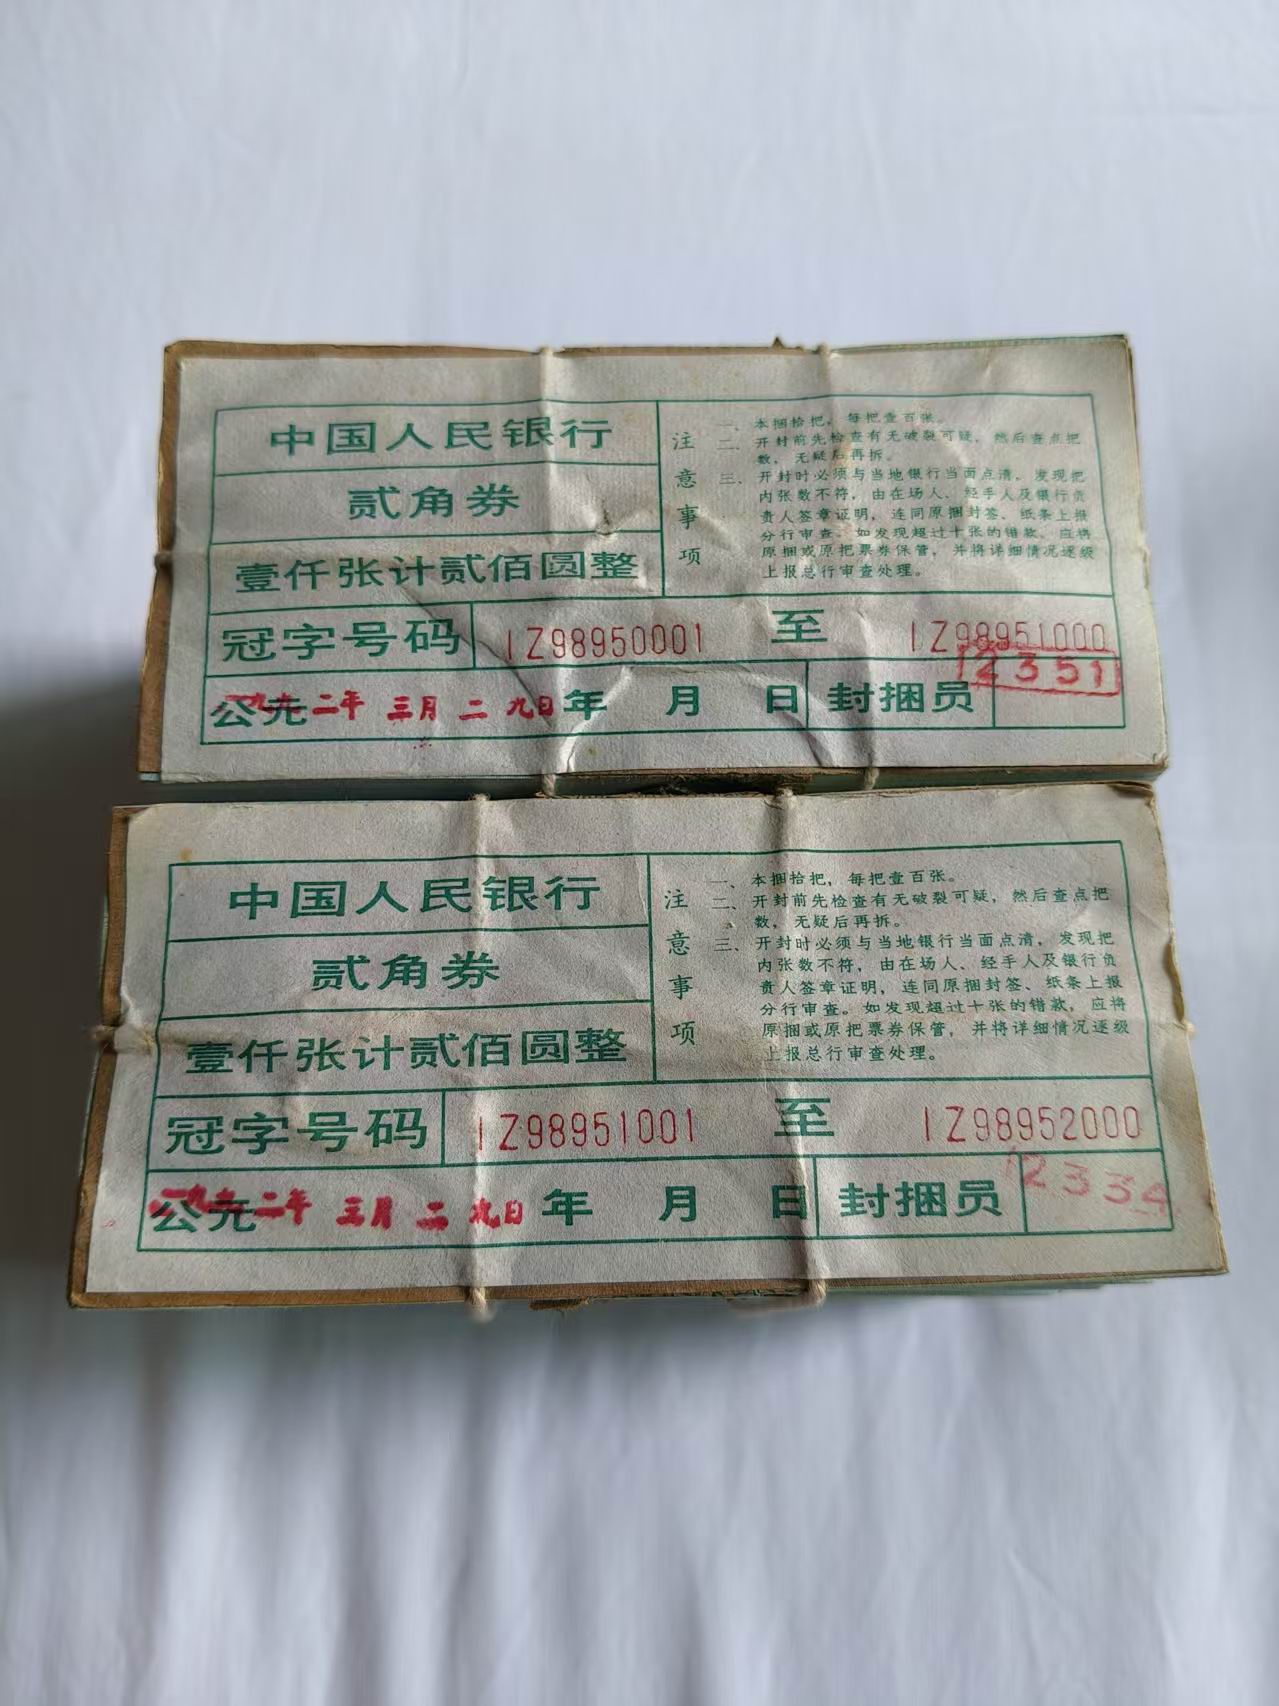 中国人民银行
贰角券
壹仟张计贰佰圆整
注意事项
一、本捆拾把，每把壹百张。
二、开封前先检查有无破裂可疑，然后查点把
数，无疑后再拆。
三、开封时必须与当地银行当面点清，发现把
内张数不符，由在场人、经手人及银行负
责人签章证明，连同原捆封签、纸条上报
分行审查。如发现超过十张的错款，应将
原捆或原把票券保管，并将详细情况逐级
上报总行审查处理。
冠字号码 IZ98950001 至 IZ98951000
公元 二年 三月 二九日 年 月 日 封捆员 12351
中国人民银行
贰角券
壹仟张计贰佰圆整
注意事项
一、本捆拾把，每把壹百张。
二、开封前先检查有无破裂可疑，然后查点把
数，无疑后再拆。
三、开封时必须与当地银行当面点清，发现把
内张数不符，由在场人、经手人及银行负
责人签章证明，连同原捆封签、纸条上报
分行审查。如发现超过十张的错款，应将
原捆或原把票券保管，并将详细情况逐级
上报总行审查处理。
冠字号码 IZ98951001 至 IZ98952000
公元 二年 三月 二九日 年 月 日 封捆员 2334